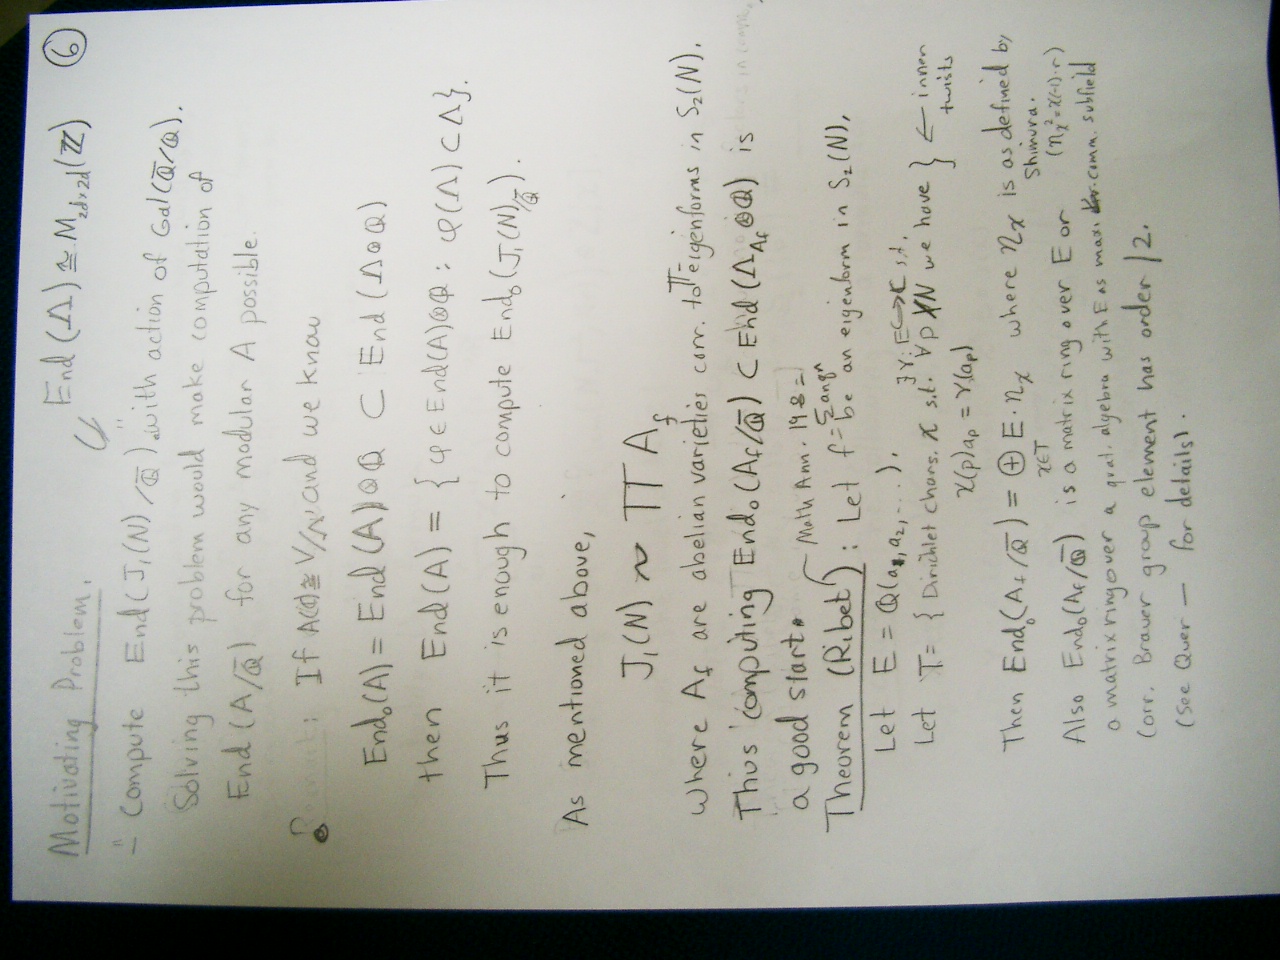 ⑥
End(Λ) ≅ M_{2d×2d}(ℤ)
Motivating Problem.
– "Compute End(J₁(N)/ℚ̄)" with action of Gal(ℚ̄/ℚ).
Solving this problem would make computation of
End(A/ℚ̄) for any modular A possible.
If A(ℂ) ≅ V/Λ and we know
End₀(A) = End(A)⊗ℚ ⊂ End(Λ⊗ℚ)
then End(A) = {φ ∈ End(A)⊗ℚ : φ(Λ) ⊂ Λ}.
Thus it is enough to compute End₀(J₁(N)/ℚ̄).
As mentioned above,
J₁(N) ~ ∏ A_f
where A_f are abelian varieties corr. to π-eigenforms in S₂(N).
Thus computing End₀(A_f/ℚ̄) ⊂ End(Λ_{A_f}⊗ℚ) is
a good start.
Math Ann.
Theorem (Ribet): Let f = Σ aₙqⁿ be an eigenform in S₂(N),
Let E = ℚ(a₁, a₂, ...).
Let T = { Dirichlet chars. χ s.t. ∃ γ: E↪ℂ s.t. ∀ p ∤ N we have } ← inner twists
χ(p)a_p = γ(a_p)
Then End₀(A_f/ℚ̄) = ⊕_{χ∈T} E·η_χ where η_χ is as defined by
Shimura.
(η_χ² = χ(-1)·r)
Also End₀(A_f/ℚ̄) is a matrix ring over E or
a matrix ring over a quat. algebra with E as max. comm. subfield
(corr. Brauer group element has order | 2.
(See Quer — for details).